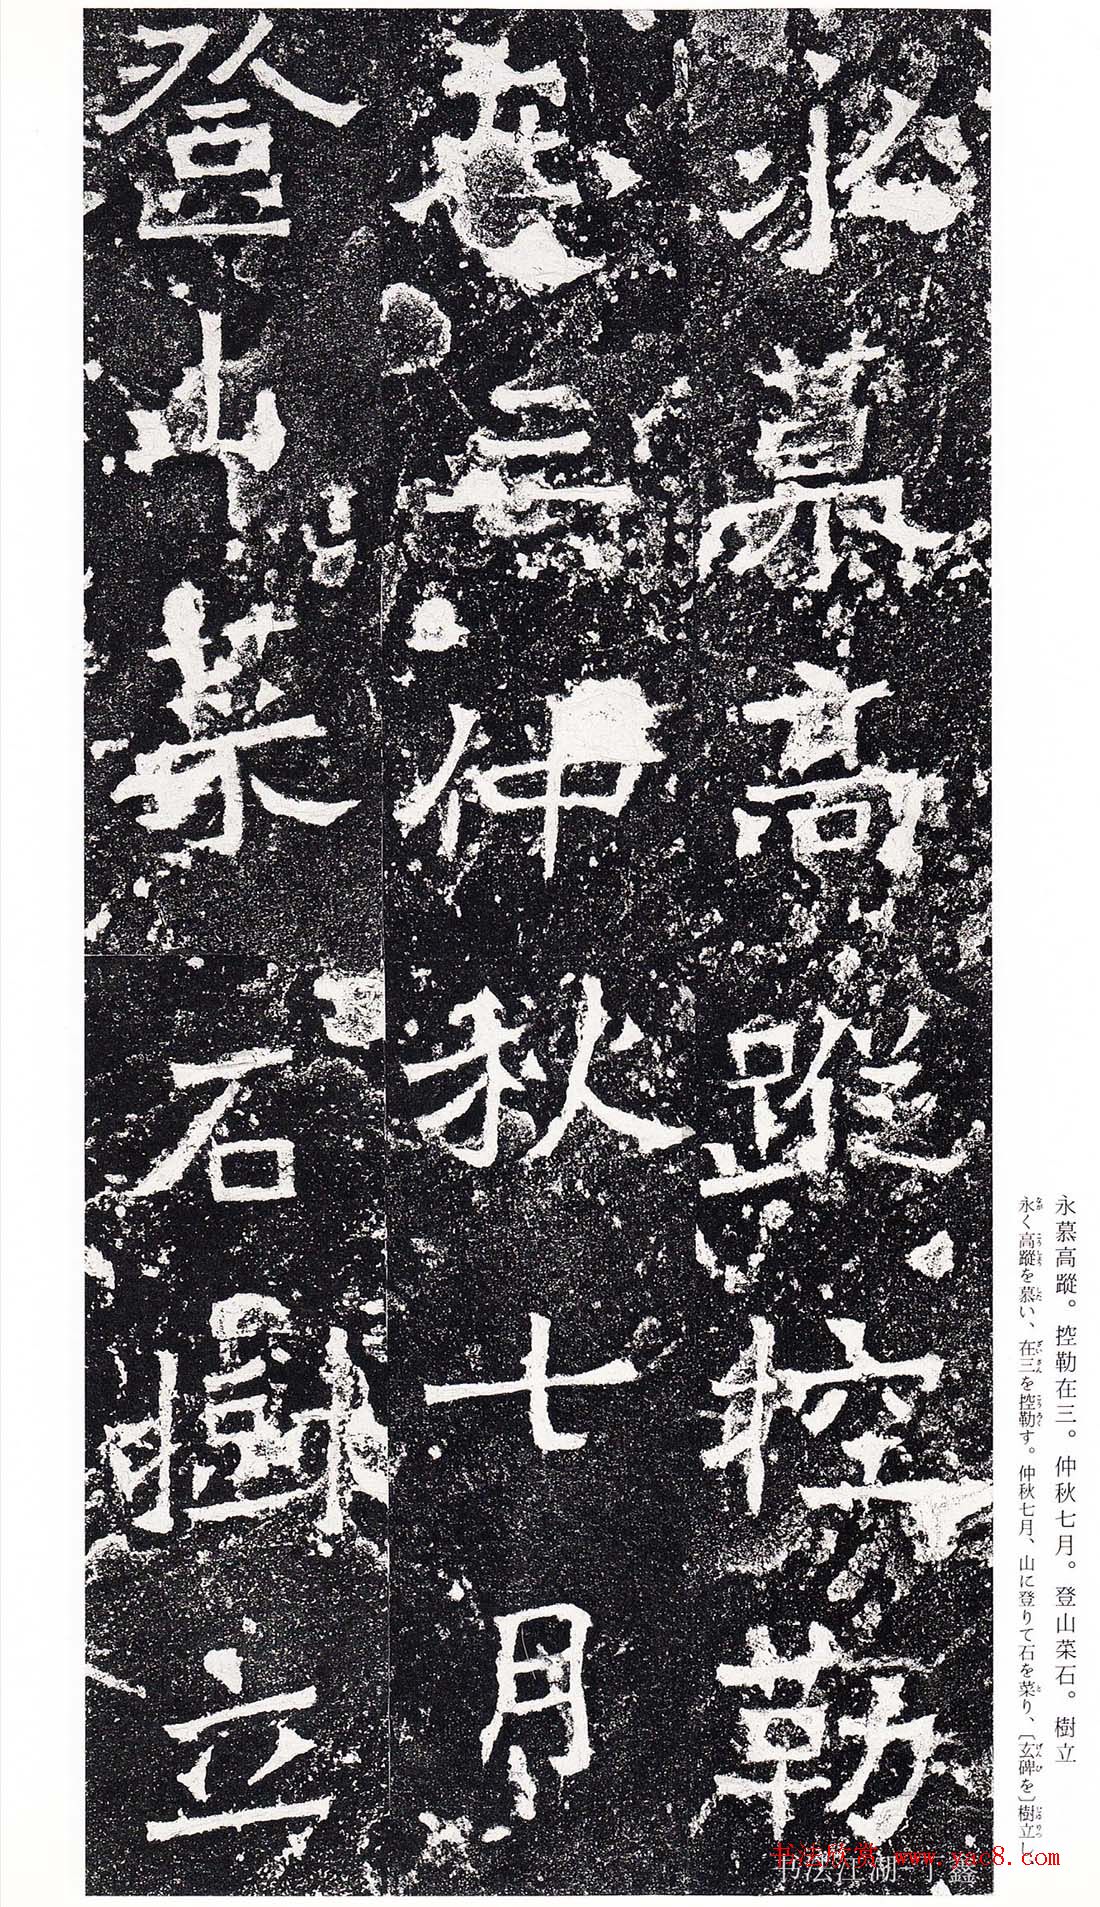 永慕高蹤控勒
在三仲秋七月
登山菜石樹立
永慕高蹤。控勒在三。仲秋七月。登山菜石。樹立
永く高蹤を慕い、在三を控勒す。仲秋七月、山に登りて石を菜り、〔玄碑を〕樹立し
书法欣赏 www.yac8.com